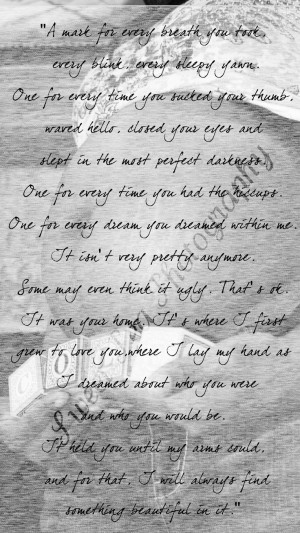 "A mark for every breath you took,
every blink, every sleepy yawn.
One for every time you sucked your thumb,
waved hello, closed your eyes and
slept in the most perfect darkness.
One for every time you had the hiccups.
One for every dream you dreamed within me.
It isn't very pretty anymore.
Some may even think it ugly. That's ok.
It was your home. It's where I first
grew to love you,where I lay my hand as
I dreamed about who you were
and who you would be.
It held you until my arms could,
and for that, I will always find
something beautiful in it."
Photography